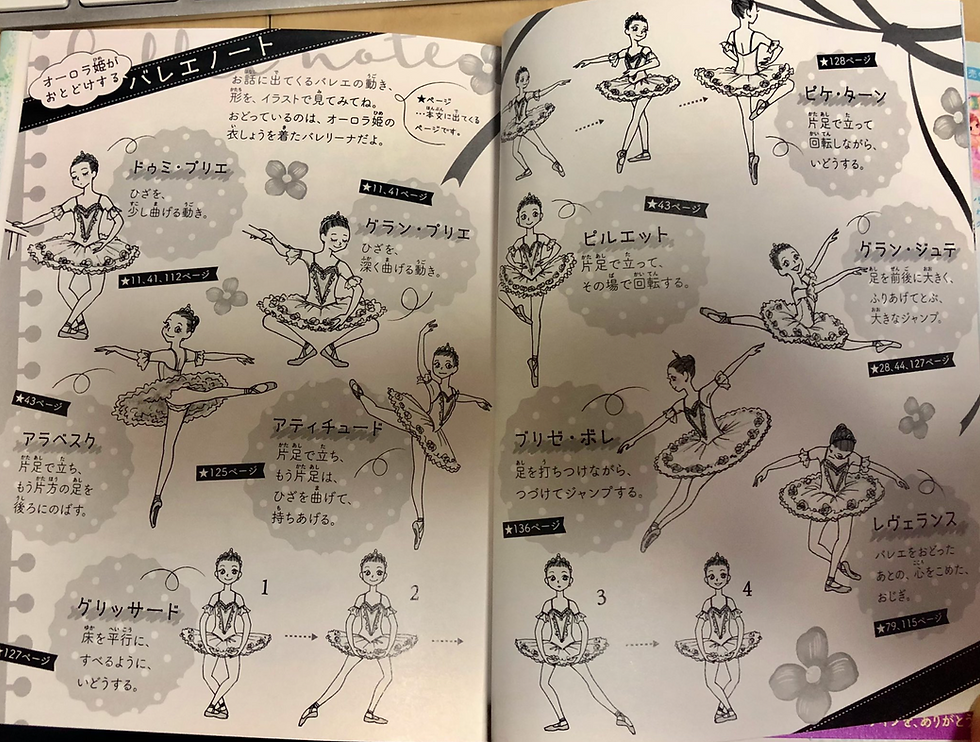 オーロラ姫が
おとどけする
バレエノート
お話に出てくるバレエの動き、
形を、イラストで見てみてね。
おどっているのは、オーロラ姫の
衣しょうを着たバレリーナだよ。
★ページ
…本文に出てくる
ページです。
ドゥミ・プリエ
ひざを、
少し曲げる動き。
★11、41、112ページ
★11、41ページ
グラン・プリエ
ひざを、
深く曲げる動き。
★43ページ
アラベスク
片足で立ち、
もう片方の足を
後ろにのばす。
アティチュード
片足で立ち、
もう片足は、
ひざを曲げて、
持ちあげる。
★125ページ
グリッサード
床を平行に、
すべるように、
いどうする。
★127ページ
1
2
3
4
★128ページ
ピケ・ターン
片足で立って
回転しながら、
いどうする。
★43ページ
ピルエット
片足で立って、
その場で回転する。
グラン・ジュテ
足を前後に大きく、
ふりあげてとぶ、
大きなジャンプ。
★28、44、127ページ
ブリゼ・ボレ
足を打ちつけながら、
つづけてジャンプする。
★136ページ
レヴェランス
バレエをおどった
あとの、心をこめた、
おじぎ。
★79、115ページ